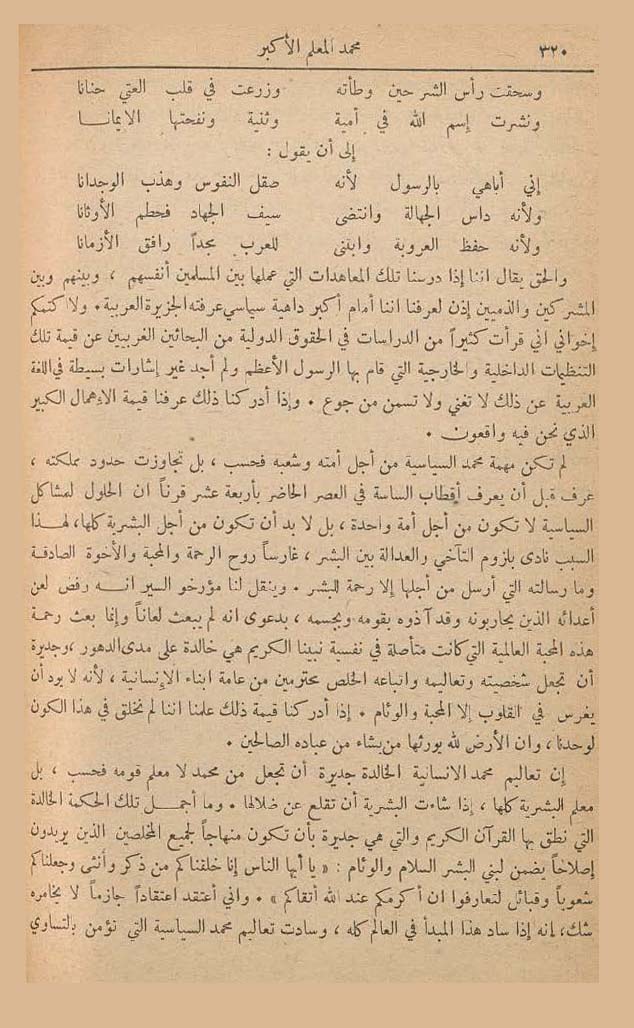 ٣٢٠ محمد المعلم الأكبر
وسحقت رأس الشر حين وطأته وزرعت في قلب العتي حنانا
ونشرت إسم الله في أمية وثنية ونفحتها الايمانا
إلى أن يقول :
إني أباهي بالرسول لأنه صقل النفوس وهذب الوجدانا
ولأنه داس الجهالة وانتضى سيف الجهاد فحطم الأوثانا
ولأنه حفظ العروبة وابتنى للعرب مجداً رافق الأزمانا
والحق يقال اننا إذا درسنا تلك المعاهدات التي عملها بين المسلمين أنفسهم ، وبينهم وبين
المشركين والذميين إذن لعرفنا اننا أمام أكبر داهية سياسي عرفته الجزيرة العربية . ولا اكتمكم
إخواني اني قرأت كثيراً من الدراسات في الحقوق الدولية من البحاثين الغربيين عن قيمة تلك
التنظيمات الداخلية والخارجية التي قام بها الرسول الأعظم ولم أجد غير إشارات بسيطة في اللغة
العربية عن ذلك لا تغني ولا تسمن من جوع . وإذا أدركنا ذلك عرفنا قيمة الاهمال الكبير
الذي نحن فيه واقعون .
لم تكن مهمة محمد السياسية من أجل أمته وشعبه فحسب ، بل تجاوزت حدود مملكته ،
عرف قبل أن يعرف أقطاب الساسة في العصر الحاضر بأربعة عشر قرناً ان الحلول لمشاكل
السياسية لا تكون من أجل أمة واحدة ، بل لا بد أن تكون من أجل البشرية كلها ، لهذا
السبب نادى بلزوم التآخي والعدالة بين البشر ، غارساً روح الرحمة والمحبة والأخوة الصادقة
وما رسالته التي أرسل من أجلها إلا رحمة للبشر . وينقل لنا مؤرخو السير انه رفض لعن
أعدائه الذين يحاربونه وقد آذوه بقومه وبجسمه ، بدعوى انه لم يبعث لعاناً وإنما بعث رحمة
هذه المحبة العالمية التي كانت متأصلة في نفسية نبينا الكريم هي خالدة على مدى الدهور ، وجديرة
أن تجعل شخصيته وتعاليمه واتباعه الخلص محترمين من عامة ابناء الإنسانية ، لأنه لا يود أن
يغرس في القلوب إلا المحبة والوئام . إذا أدركنا قيمة ذلك علمنا اننا لم نخلق في هذا الكون
لوحدنا ، وان الأرض لله يورثها من يشاء من عباده الصالحين .
إن تعاليم محمد الانسانية الخالدة جديرة أن تجعل من محمد لا معلم قومه فحسب ، بل
معلم البشرية كلها ، إذا شاءت البشرية أن تقلع عن ضلالها . وما أجمل تلك الحكمة الخالدة
التي نطق بها القرآن الكريم والتي هي جديرة بأن تكون منهاجاً لجميع المخلصين الذين يريدون
إصلاحاً يضمن لبني البشر السلام والوئام : « يا أيها الناس إنا خلقناكم من ذكر وأنثى وجعلناكم
شعوباً وقبائل لتعارفوا ان أكرمكم عند الله أتقاكم » . واني أعتقد اعتقاداً جازماً لا يخامره
شك ، إنه إذا ساد هذا المبدأ في العالم كله ، وسادت تعاليم محمد السياسية التي تؤمن بالتساوي